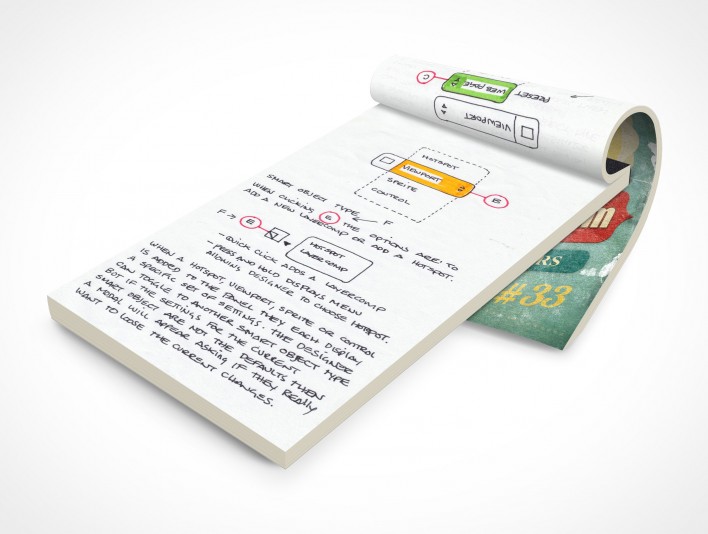 C
WEB PAGE
PRESET
VIEWPORT
HOTSPOT
VIEWPORT
E
SPRITE
CONTROL
SMART OBJECT TYPE F
WHEN CLICKING G THE OPTIONS ARE: TO
ADD A NEW LAYERCOMP OR ADD A HOTSPOT.
F → E
HOTSPOT
LAYERCOMP
- QUICK CLICK ADDS A LAYERCOMP
- PRESS AND HOLD DISPLAYS MENU
ALLOWING DESIGNER TO CHOOSE HOTSPOT.
WHEN A HOTSPOT, VIEWPORT, SPRITE OR CONTROL
IS ADDED TO THE PANEL THEY EACH DISPLAY
A SPECIFIC SET OF SETTINGS. THE DESIGNER
CAN TOGGLE TO ANOTHER SMART OBJECT TYPE
BUT IF THE SETTINGS FOR THE CURRENT
SMART OBJECT ARE NOT THE DEFAULTS THEN
A MODAL WILL APPEAR ASKING IF THEY REALLY
WANT TO LOOSE THE CURRENT CHANGES.
#33